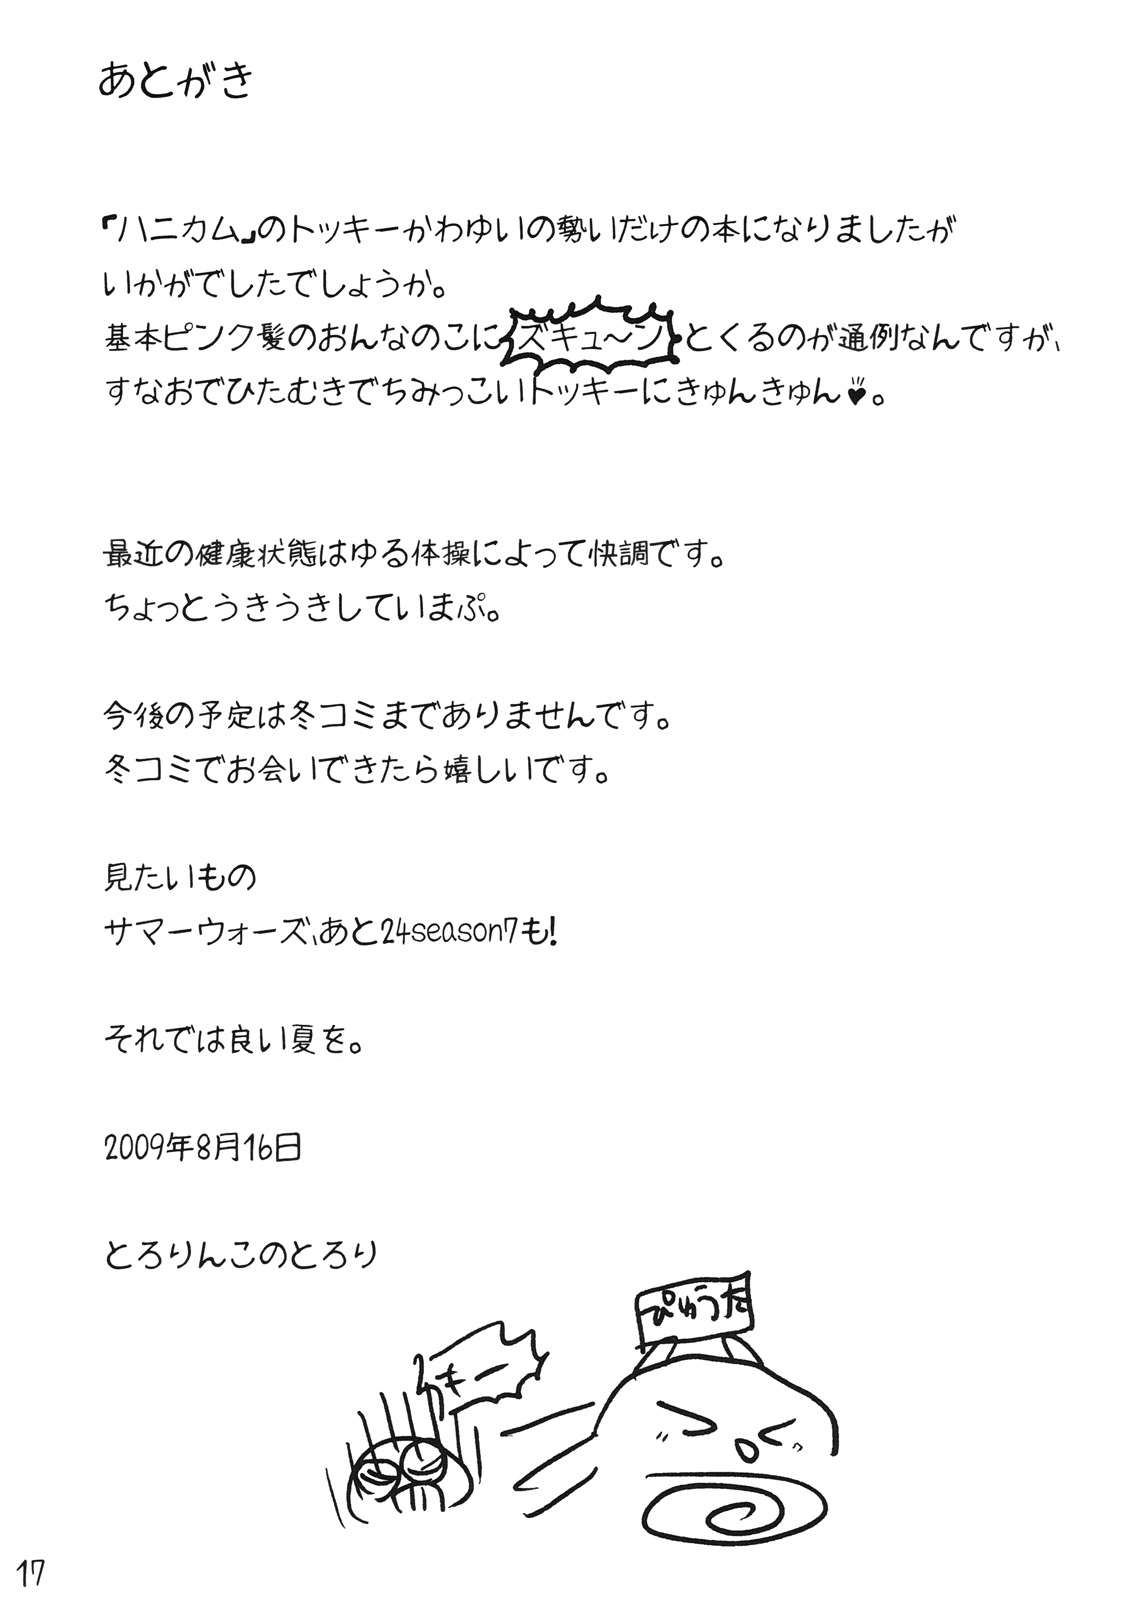 あとがき
『ハニカム』のトッキーかわゆいの勢いだけの本になりましたが
いかがでしたでしょうか。
基本ピンク髪のおんなのこにズキュ～ンとくるのが通例なんですが、
すなおでひたむきでちみっこいトッキーにきゅんきゅん♥。
最近の健康状態はゆる体操によって快調です。
ちょっとうきうきしていまぷ。
今後の予定は冬コミまでありませんです。
冬コミでお会いできたら嬉しいです。
見たいもの
サマーウォーズ、あと24season7も!
それでは良い夏を。
2009年8月16日
とろりんこのとろり
ぴゅうた
うきー
17